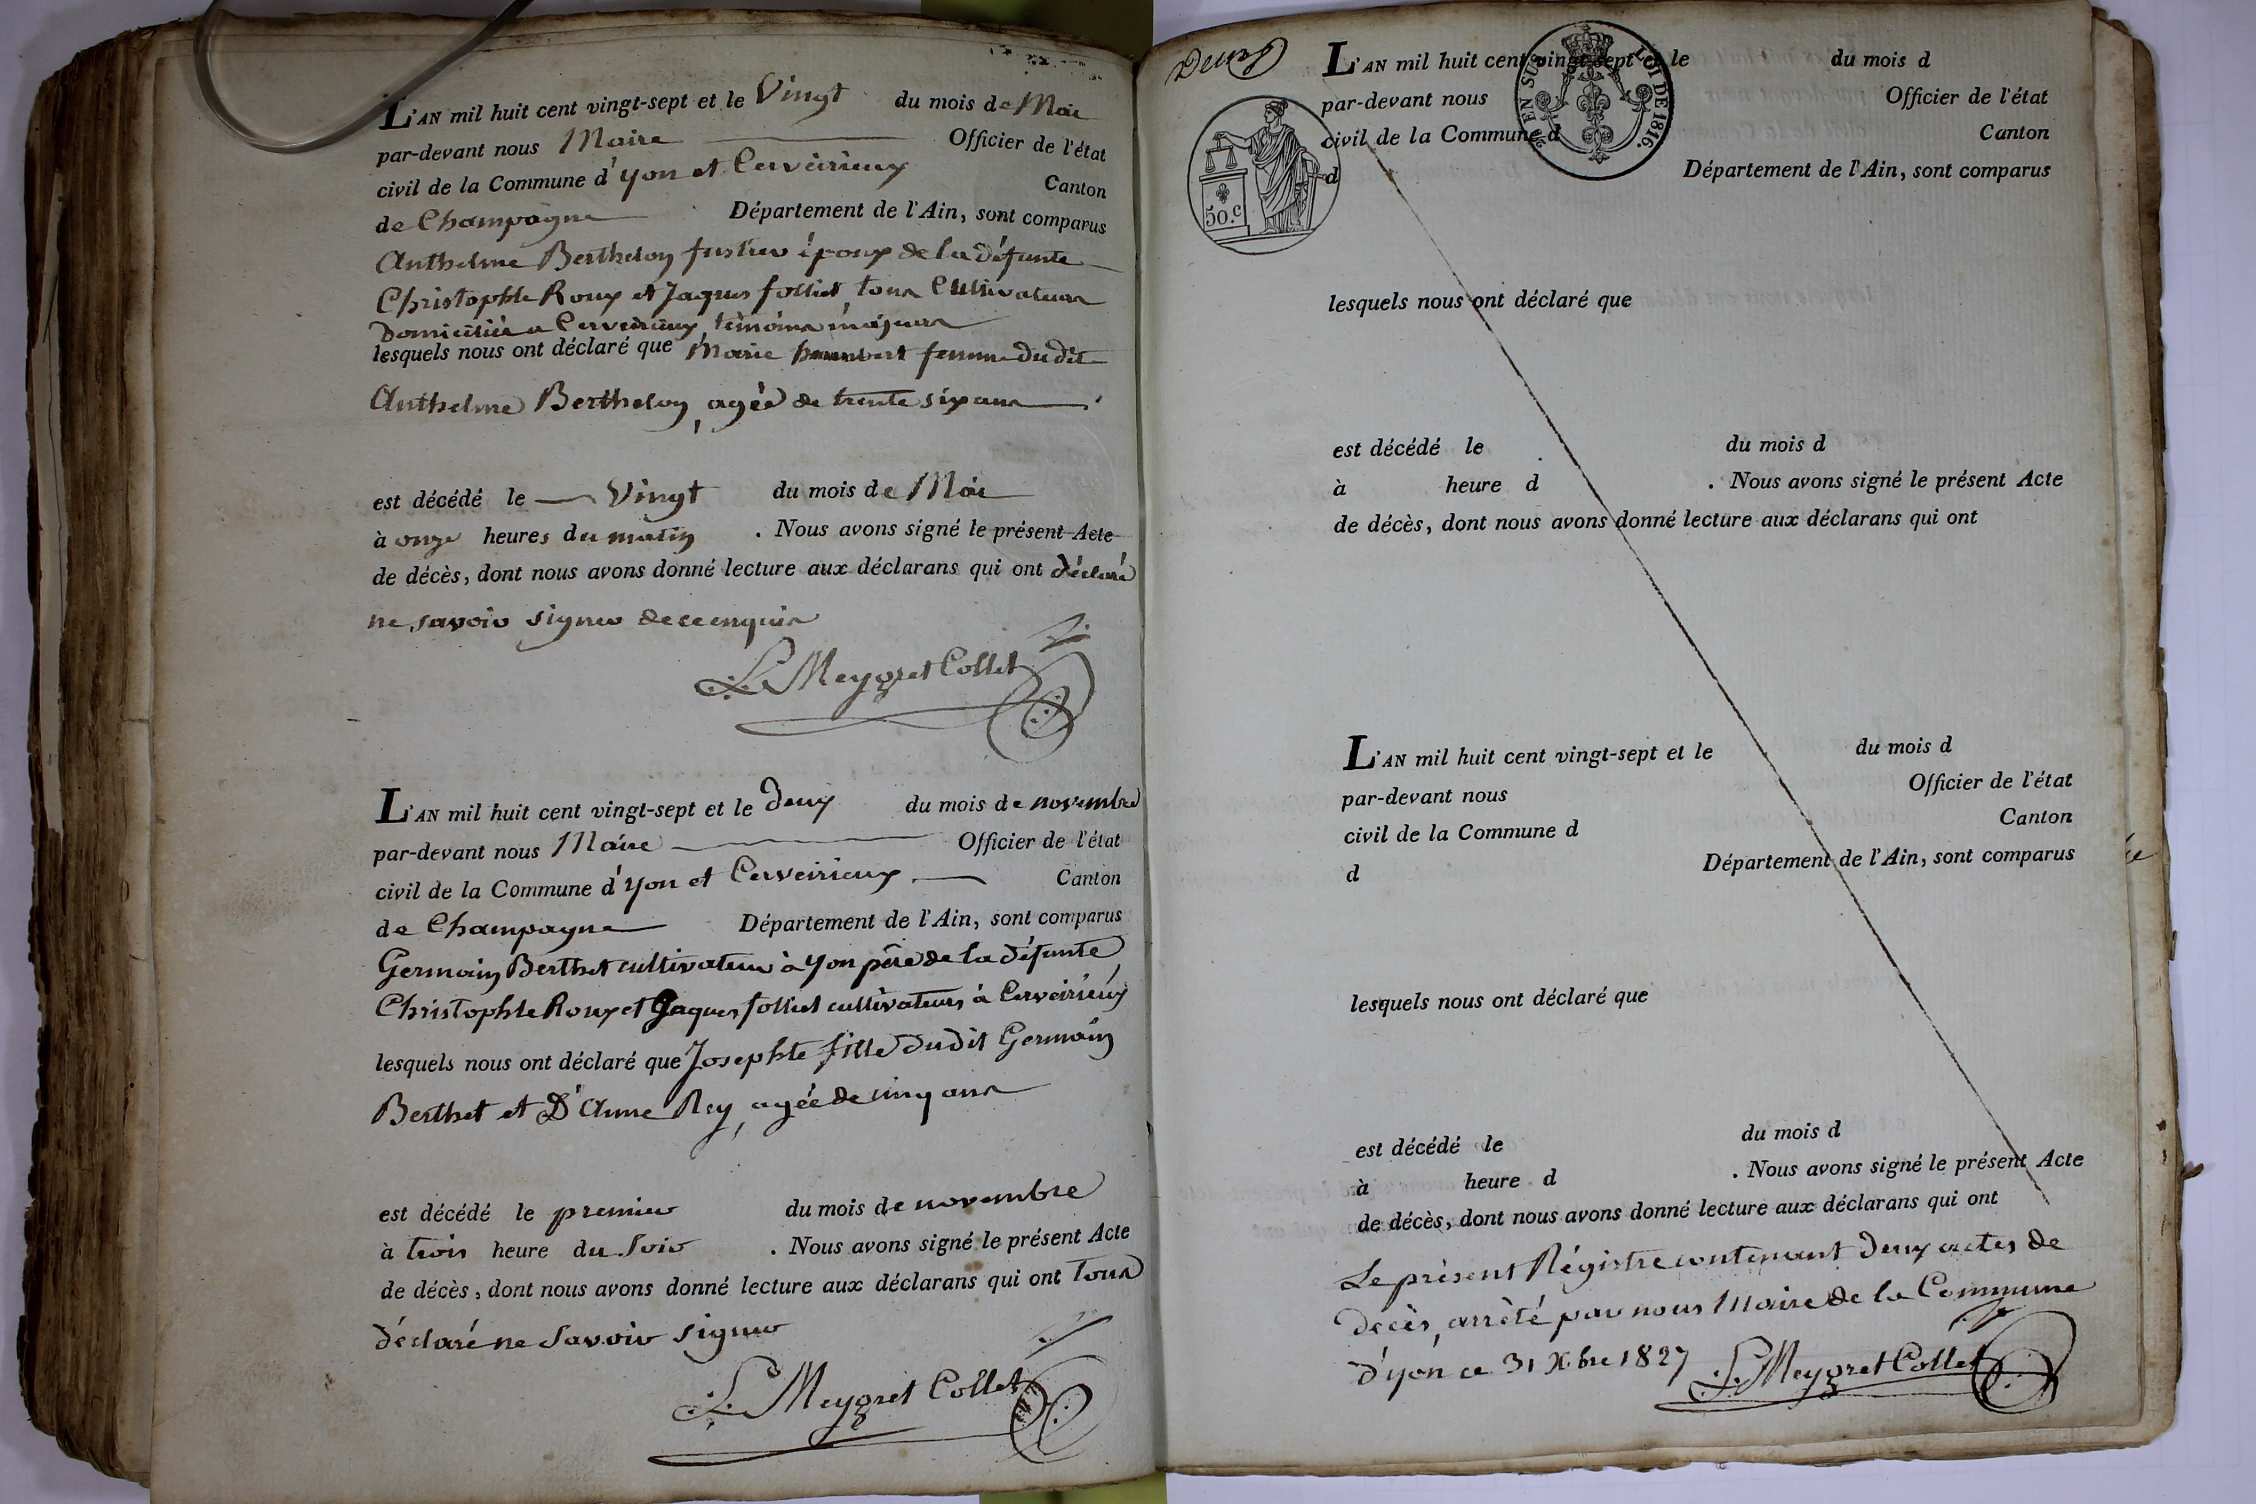 L'AN mil huit cent vingt-sept et le Vingt du mois de Mai
par-devant nous Maire Officier de l'état
civil de la Commune d'yon et Cerveirieux Canton
de Champagne Département de l'Ain, sont comparus
Anthelme Berthelon fustier époux de la défunte
Christophle Roux et Jaques folliet, tous Cultivateurs
Domiciliés a Cerveirieux, témoins majeurs
lesquels nous ont déclaré que Marie femme du dit
Anthelme Berthelon, agée de trente six ans
est décédé le Vingt du mois de Mai
à onze heures du matin . Nous avons signé le présent Acte
de décès, dont nous avons donné lecture aux déclarans qui ont déclaré
ne savoir signer de ce enquis
L. Meygret Collet
L'AN mil huit cent vingt-sept et le deux du mois de novembre
par-devant nous Maire Officier de l'état
civil de la Commune d'yon et Cerveirieux Canton
de Champagne Département de l'Ain, sont comparus
Germain Berthet cultivateur à yon père de la défunte
Christophle Roux et Jaques folliet cultivateurs à Cerveirieux
lesquels nous ont déclaré que Josephte fille du dit Germain
Berthet et D'Anne Rey, agée de cinq ans
est décédé le premier du mois de novembre
à trois heure du Soir . Nous avons signé le présent Acte
de décès, dont nous avons donné lecture aux déclarans qui ont tous
déclaré ne Savoir signer
L. Meygret Collet
Deux
L'AN mil huit cent vingt-sept et le du mois d
par-devant nous Officier de l'état
civil de la Commune d Canton
d Département de l'Ain, sont comparus
EN SUS LOI DE 1816.
50.c
lesquels nous ont déclaré que
est décédé le du mois d
à heure d . Nous avons signé le présent Acte
de décès, dont nous avons donné lecture aux déclarans qui ont
L'AN mil huit cent vingt-sept et le du mois d
par-devant nous Officier de l'état
civil de la Commune d Canton
d Département de l'Ain, sont comparus
lesquels nous ont déclaré que
est décédé le du mois d
à heure d . Nous avons signé le présent Acte
de décès, dont nous avons donné lecture aux déclarans qui ont
Le présent Régistre contenant deux actes de
décès, arrêté par nous Maire de la Commune
d'yon ce 31 Xbre 1827 L. Meygret Collet